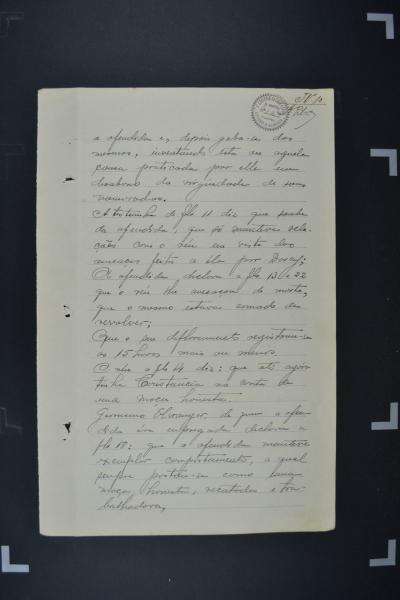 a ofendida e, depois gaba-se dos
mesmos, inventando esta ou aquela
cousa praticada por elle em
desabono da virgindade de suas
namoradas.
A testemunha de fls 11 diz que soube
da ofendida, que só manteve rela-
ções com o réu em vista das
ameaças feitas a ela por
A ofendida declara a fls 13 e 22
que o réu lhe ameaçou de morte,
que o mesmo estava armado de
revolver;
Que o seu defloramento registrou-se
as 15 horas mais ou menos.
O réu a fls 14 diz: que até agora
tinha Constancia na conta de
uma moça honesta.
Germano, de quem a ofen-
dida era empregada declara a
fls 18: que a ofendida manteve
exemplar comportamento, a qual
sempre portou-se como uma
moça honesta, recatada e tra-
balhadora,